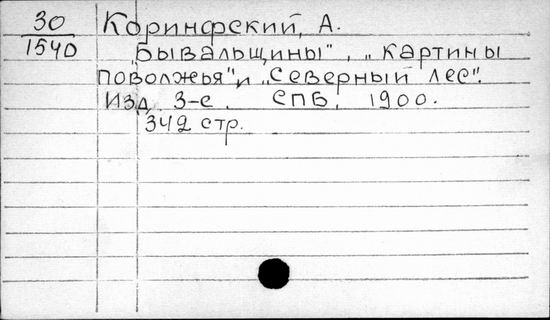 30
1540
Коринфский, А.
"Бывальщины", "картины
поволжья" и "Северный лес".
Изд. 3-е. СПБ, 1900.
342 стр.